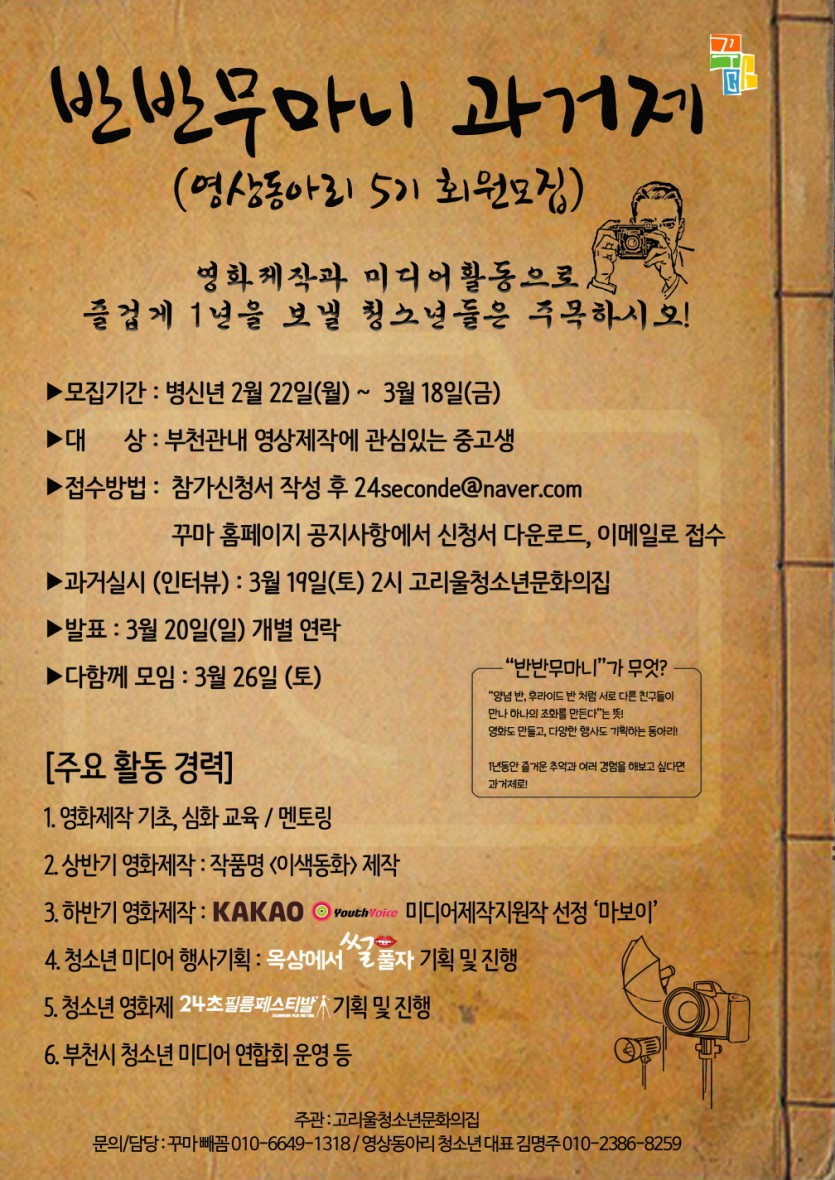 반반무마니 과거제
꾸마
(영상동아리 5기 회원모집)
영화제작과 미디어활동으로
즐겁게 1년을 보낼 청소년들은 주목하시오!
▶모집기간 : 병신년 2월 22일(월) ~ 3월 18일(금)
▶대 상 : 부천관내 영상제작에 관심있는 중고생
▶접수방법 : 참가신청서 작성 후 24seconde@naver.com
꾸마 홈페이지 공지사항에서 신청서 다운로드, 이메일로 접수
▶과거실시 (인터뷰) : 3월 19일(토) 2시 고리울청소년문화의집
▶발표 : 3월 20일(일) 개별 연락
▶다함께 모임 : 3월 26일 (토)
“반반무마니”가 무엇?
“양념 반, 후라이드 반 처럼 서로 다른 친구들이
만나 하나의 조화를 만든다”는 뜻!
영화도 만들고, 다양한 행사도 기획하는 동아리!
1년동안 즐거운 추억과 여러 경험을 해보고 싶다면
과거제로!
[주요 활동 경력]
1. 영화제작 기초, 심화 교육 / 멘토링
2. 상반기 영화제작 : 작품명 <이색동화> 제작
3. 하반기 영화제작 : KAKAO YouthVoice 미디어제작지원작 선정 ‘마보이’
4. 청소년 미디어 행사기획 : 옥상에서 썰풀자 기획 및 진행
5. 청소년 영화제 24초필름페스티발 기획 및 진행
6. 부천시 청소년 미디어 연합회 운영 등
주관 : 고리울청소년문화의집
문의/담당 : 꾸마 빼꼼 010-6649-1318 / 영상동아리 청소년 대표 김명주 010-2386-8259